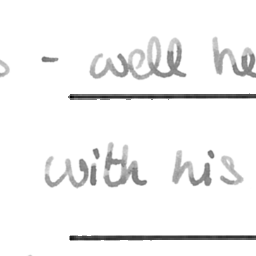 - well he
with his